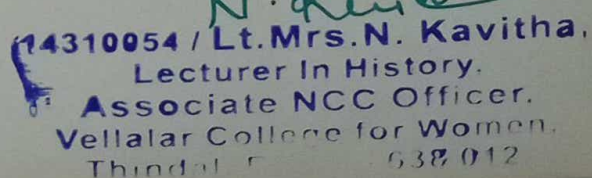 N.
14310054 / Lt.Mrs.N. Kavitha,
Lecturer In History.
Associate NCC Officer.
Vellalar College for Women.
Thindal 638 012